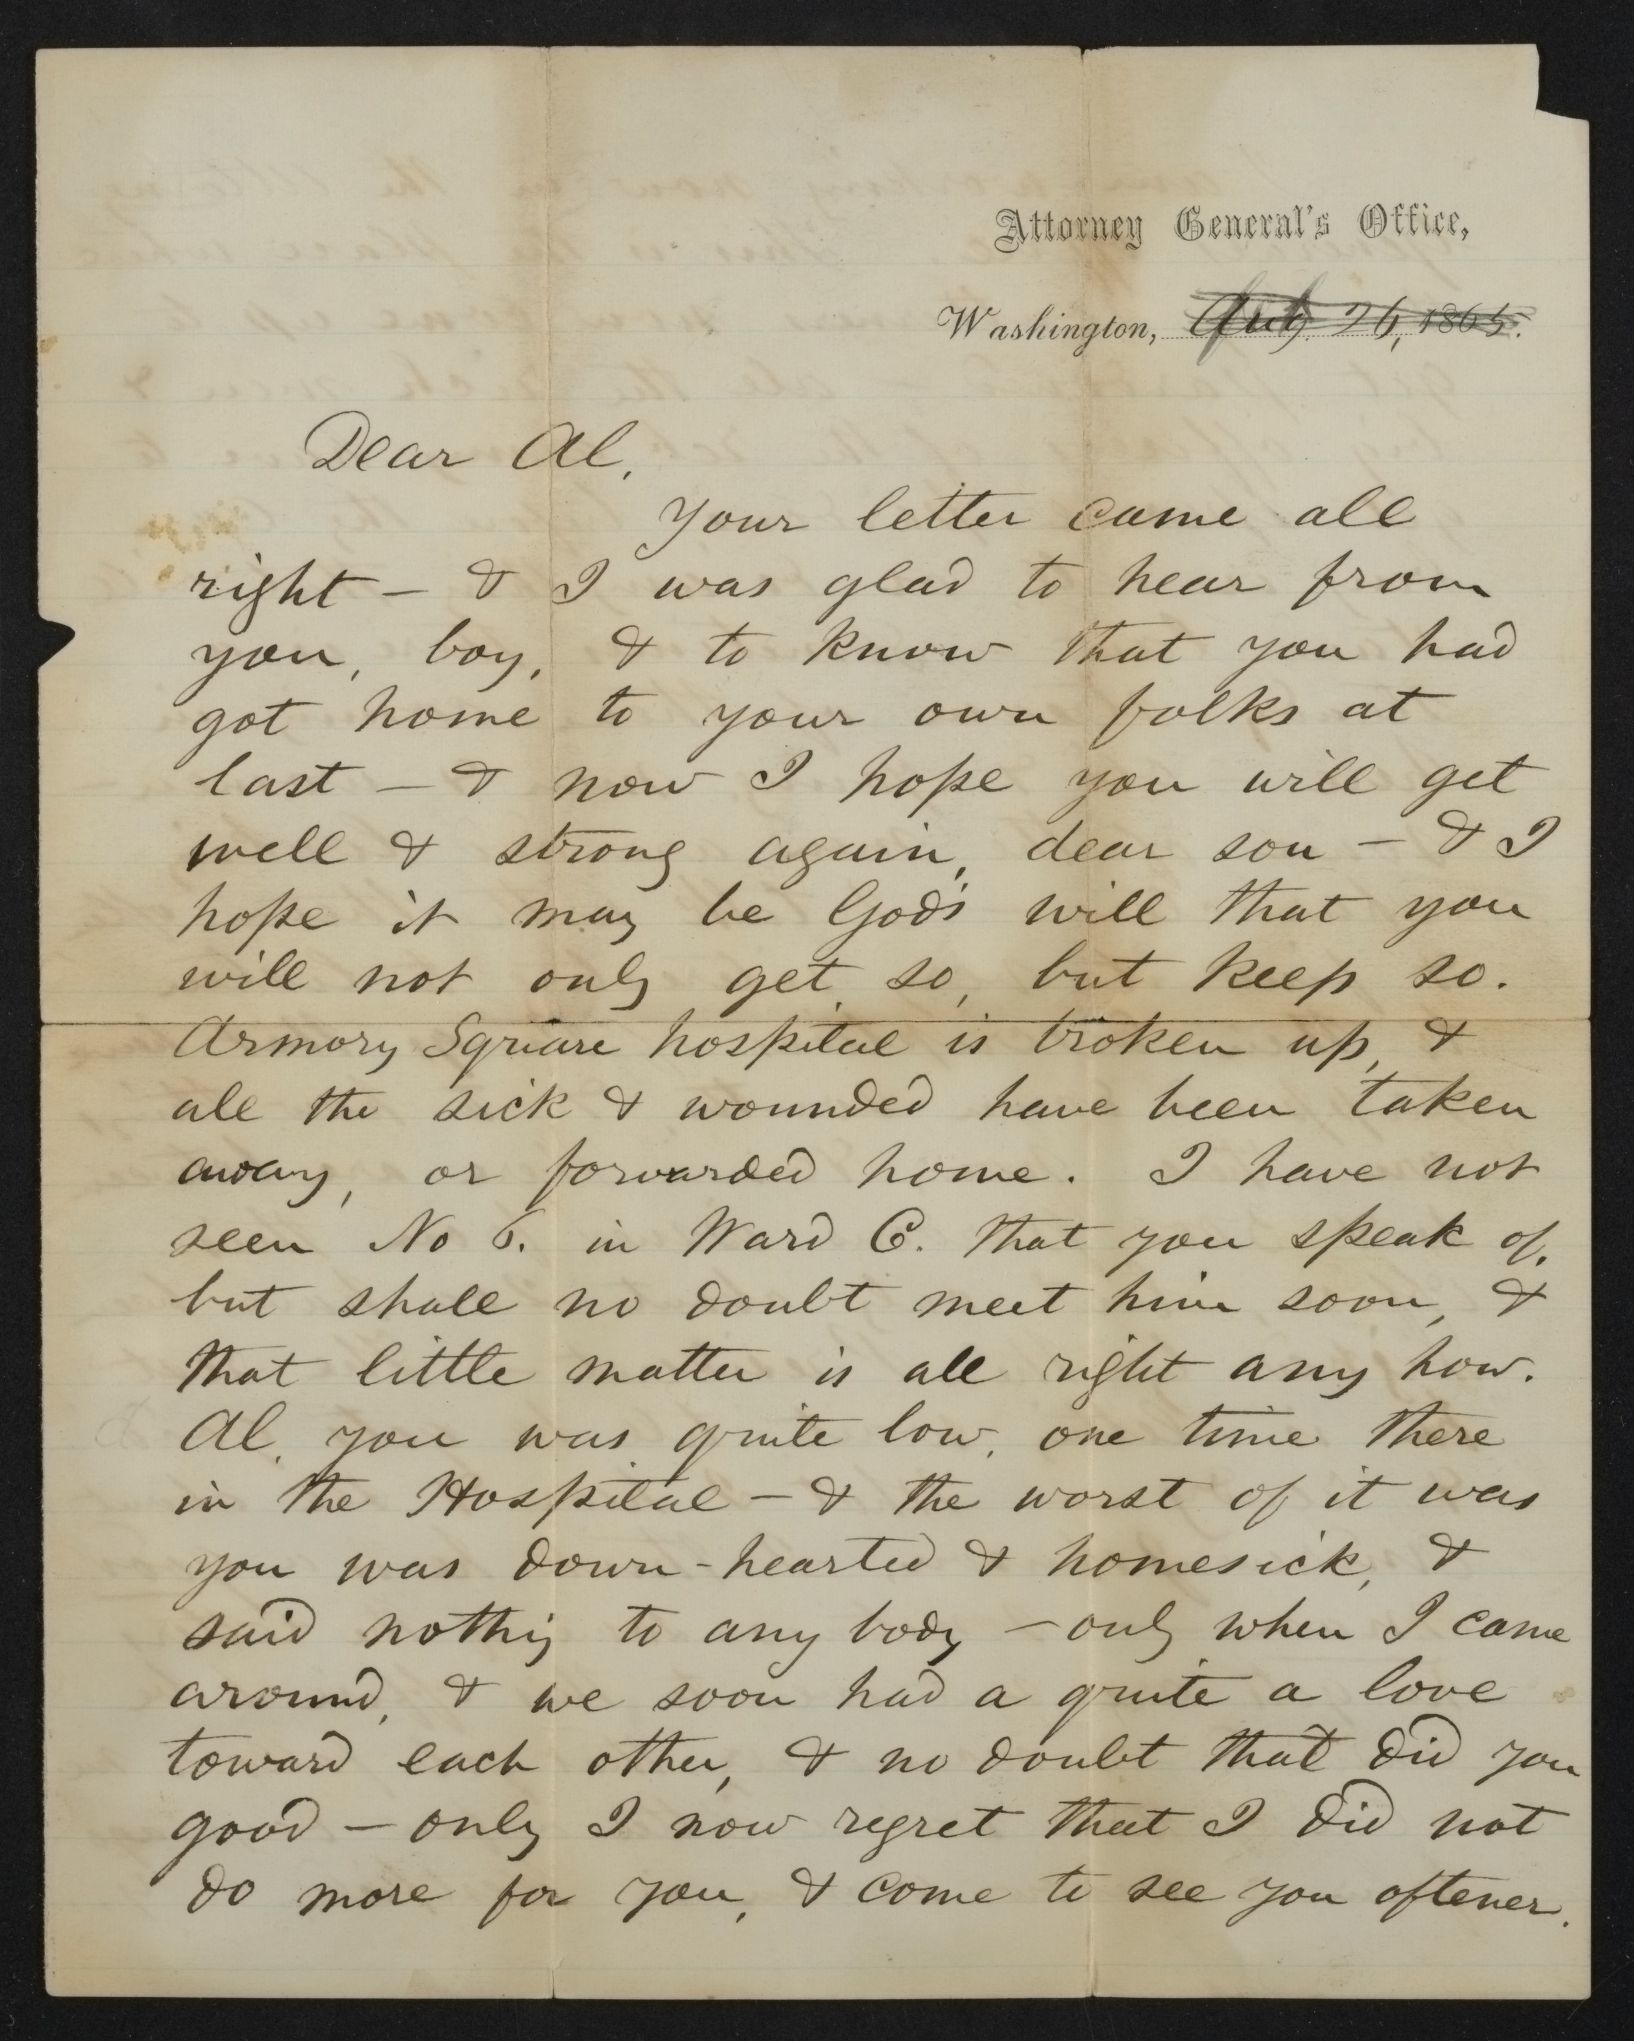 Attorney General's Office,
Washington, Aug. 26, 1865.
Dear Al,
Your letter came all
right — & I was glad to hear from
you, boy, & to know that you had
got home to your own folks at
last — & now I hope you will get
well & strong again, dear son — & I
hope it may be God's will that you
will not only get so, but keep so.
Armory Square hospital is broken up, &
all the sick & wounded have been taken
away, or forwarded home. I have not
seen No 6. in Ward C. that you speak of,
but shall no doubt meet him soon, &
that little matter is all right any how.
Al, you was quite low, one time there
in the Hospital — & the worst of it was
you was down-hearted & homesick, &
said nothig to any body — only when I came
around, & we soon had a quite a love
toward each other, & no doubt that did you
good — only I now regret that I did not
do more for you, & come to see you oftener.